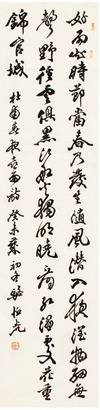 好雨知時節當春乃發生隨風潛入夜潤物細無
聲野徑雲俱黑江船火獨明曉看紅濕處花重
錦官城 杜甫春夜喜雨 癸未